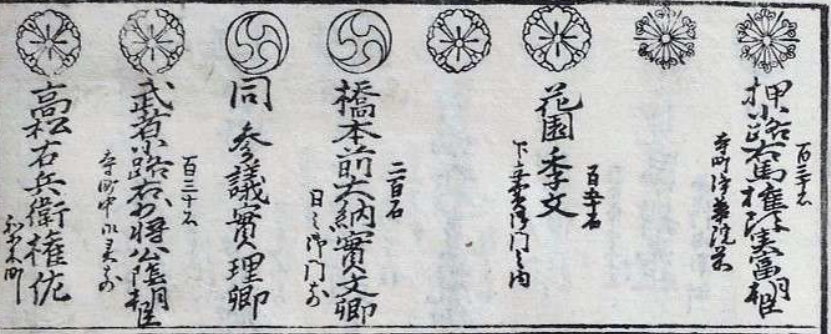 百三十石
押小路右馬権頭実富朝臣
寺町浄華院前
百五十石
花園季文
下立売御門之内
二百石
橋本前大納實文卿
日之御門前
同 参議實理卿
百三十石
武者小路右少将公陰朝臣
高松右兵衛権佐
梨木町